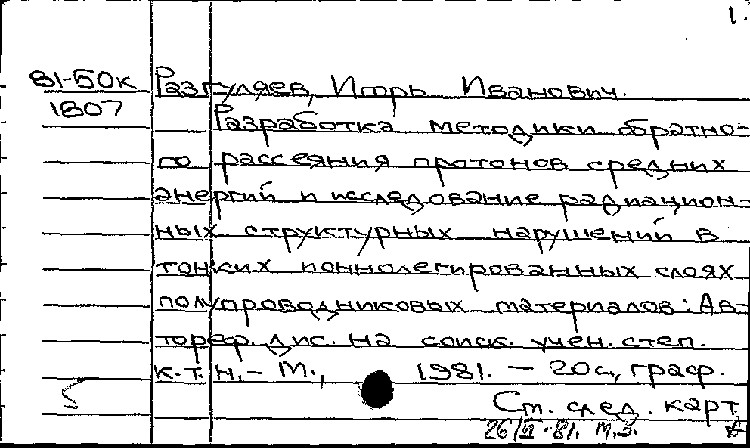 1.
81-50к Разгуляев, Игорь Иванович.
1807 Разработка методики обратно-
го рассеяния протонов средних
энергий и исследование радиацион-
ных структурных нарушений в
тонких ионнолегированных слоях
полупроводниковых материалов: Ав-
тореф. дис. на соиск. учен. степ.
к.т.н. - М., 1981. - 20 с, граф.
См. след. карт.